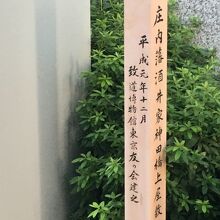 庄内藩酒井家神田橋上屋敷
平成元年十二月
致道博物館東京友の会建之